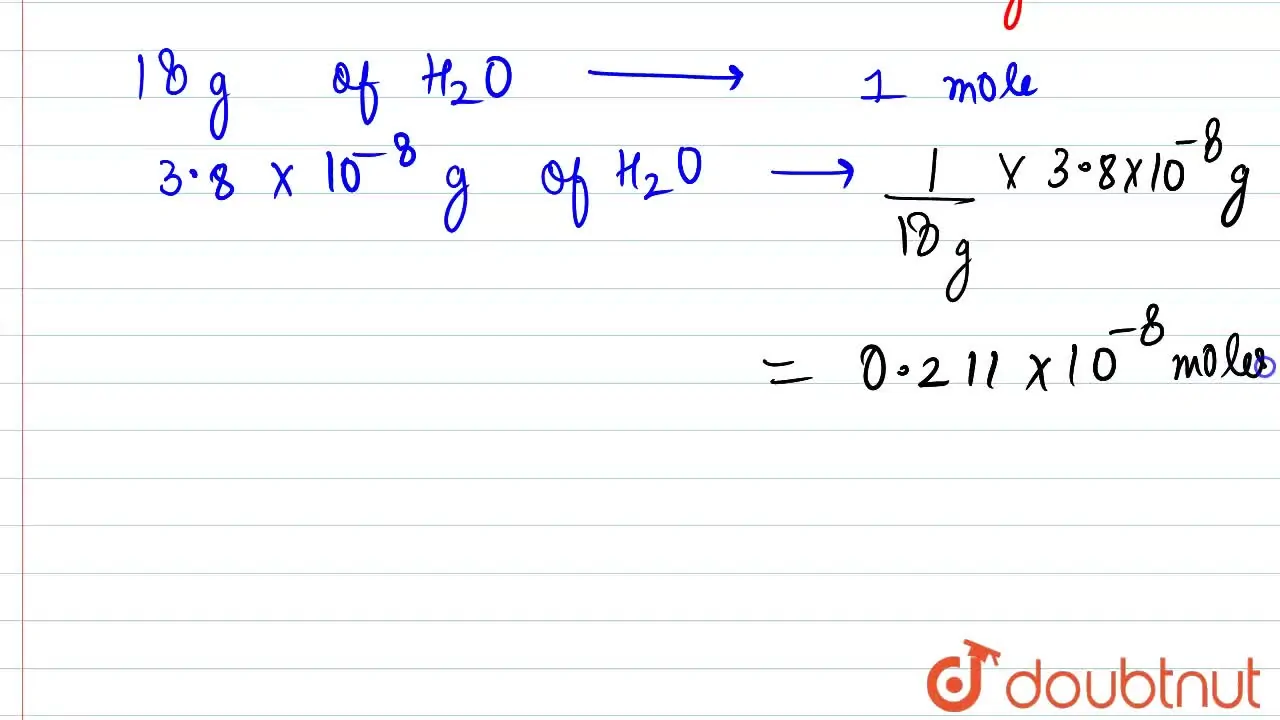 18 g of H2O → 1 mole
3.8 x 10^-8 g of H2O → 1/18 g x 3.8 x 10^-8 g
= 0.211 x 10^-8 moles
doubtnut